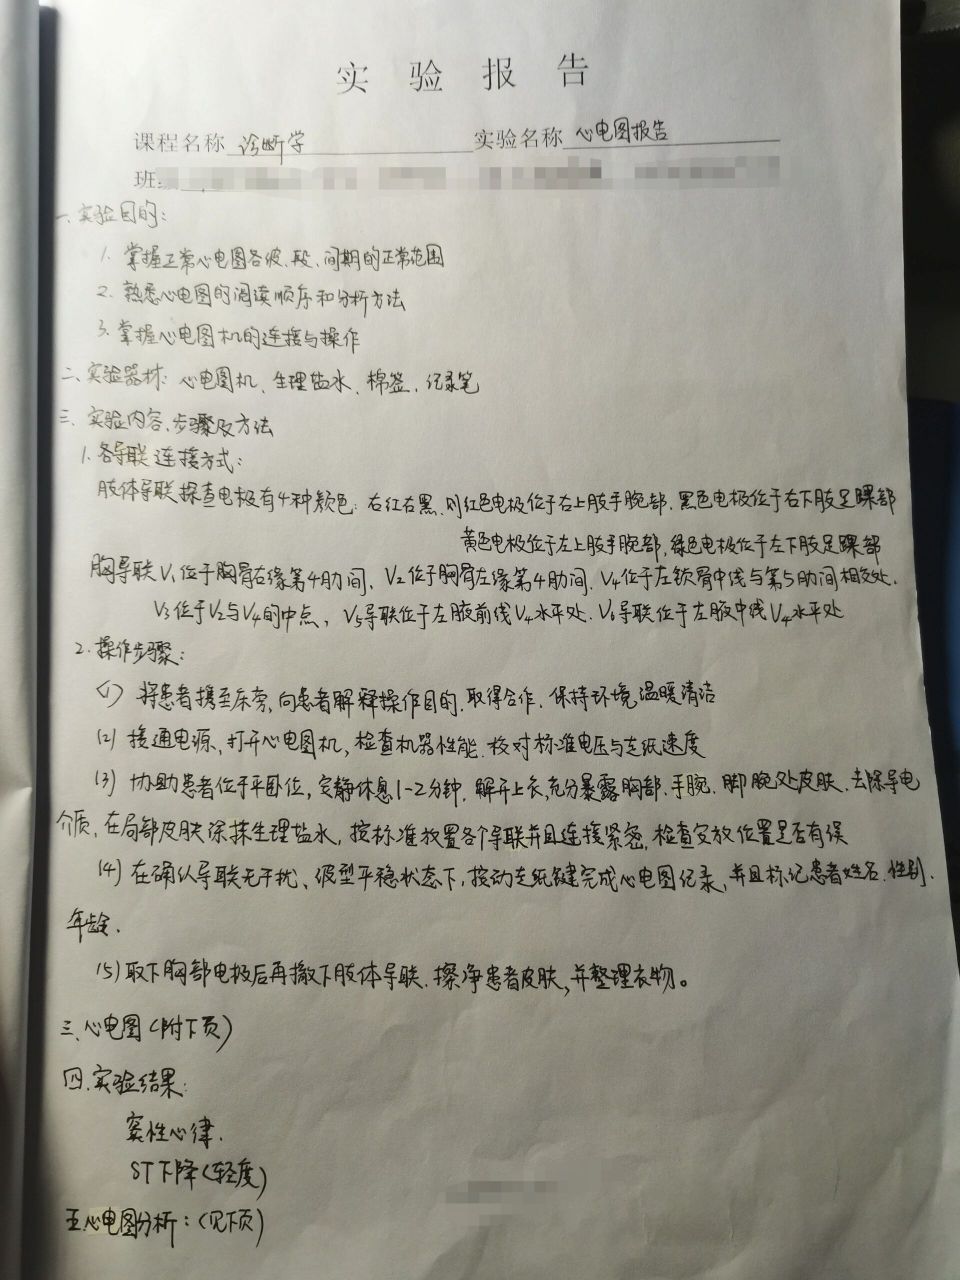 实验报告
课程名称 诊断学 实验名称 心电图报告
班
一、实验目的:
1. 掌握正常心电图各波、段、间期的正常范围
2. 熟悉心电图的阅读顺序和分析方法
3. 掌握心电图机的连接与操作
二、实验器材: 心电图机、生理盐水、棉签、记录笔
三、实验内容、步骤及方法
1. 各导联连接方式:
肢体导联探查电极有4种颜色: 右红右黑、则红色电极位于右上肢手腕部、黑色电极位于右下肢足踝部
黄色电极位于左上肢手腕部,绿色电极位于左下肢足踝部
胸导联V₁位于胸骨右缘第4肋间、V₂位于胸骨左缘第4肋间、V₄位于左锁骨中线与第5肋间相交处、
V₃位于V₂与V₄的中点, V₅导联位于左腋前线V₄水平处、V₆导联位于左腋中线V₄水平处
2. 操作步骤:
(1) 将患者携至床旁,向患者解释操作目的、取得合作、保持环境温暖清洁
(2) 接通电源,打开心电图机,检查机器性能、校对标准电压与走纸速度
(3) 协助患者位于平卧位,安静休息1-2分钟,解开上衣,充分暴露胸部、手腕、脚腕处皮肤、去除导电
介质,在局部皮肤涂抹生理盐水,按标准放置各个导联并且连接紧密,检查安放位置是否有误
(4) 在确认导联无干扰、波型平稳状态下,按动走纸键完成心电图记录,并且标记患者姓名、性别、
年龄.
(5) 取下胸部电极后再撤下肢体导联、擦净患者皮肤,并整理衣物。
三、心电图(附下页)
四、实验结果:
窦性心律.
ST下降(轻度)
五.心电图分析:(见下页)